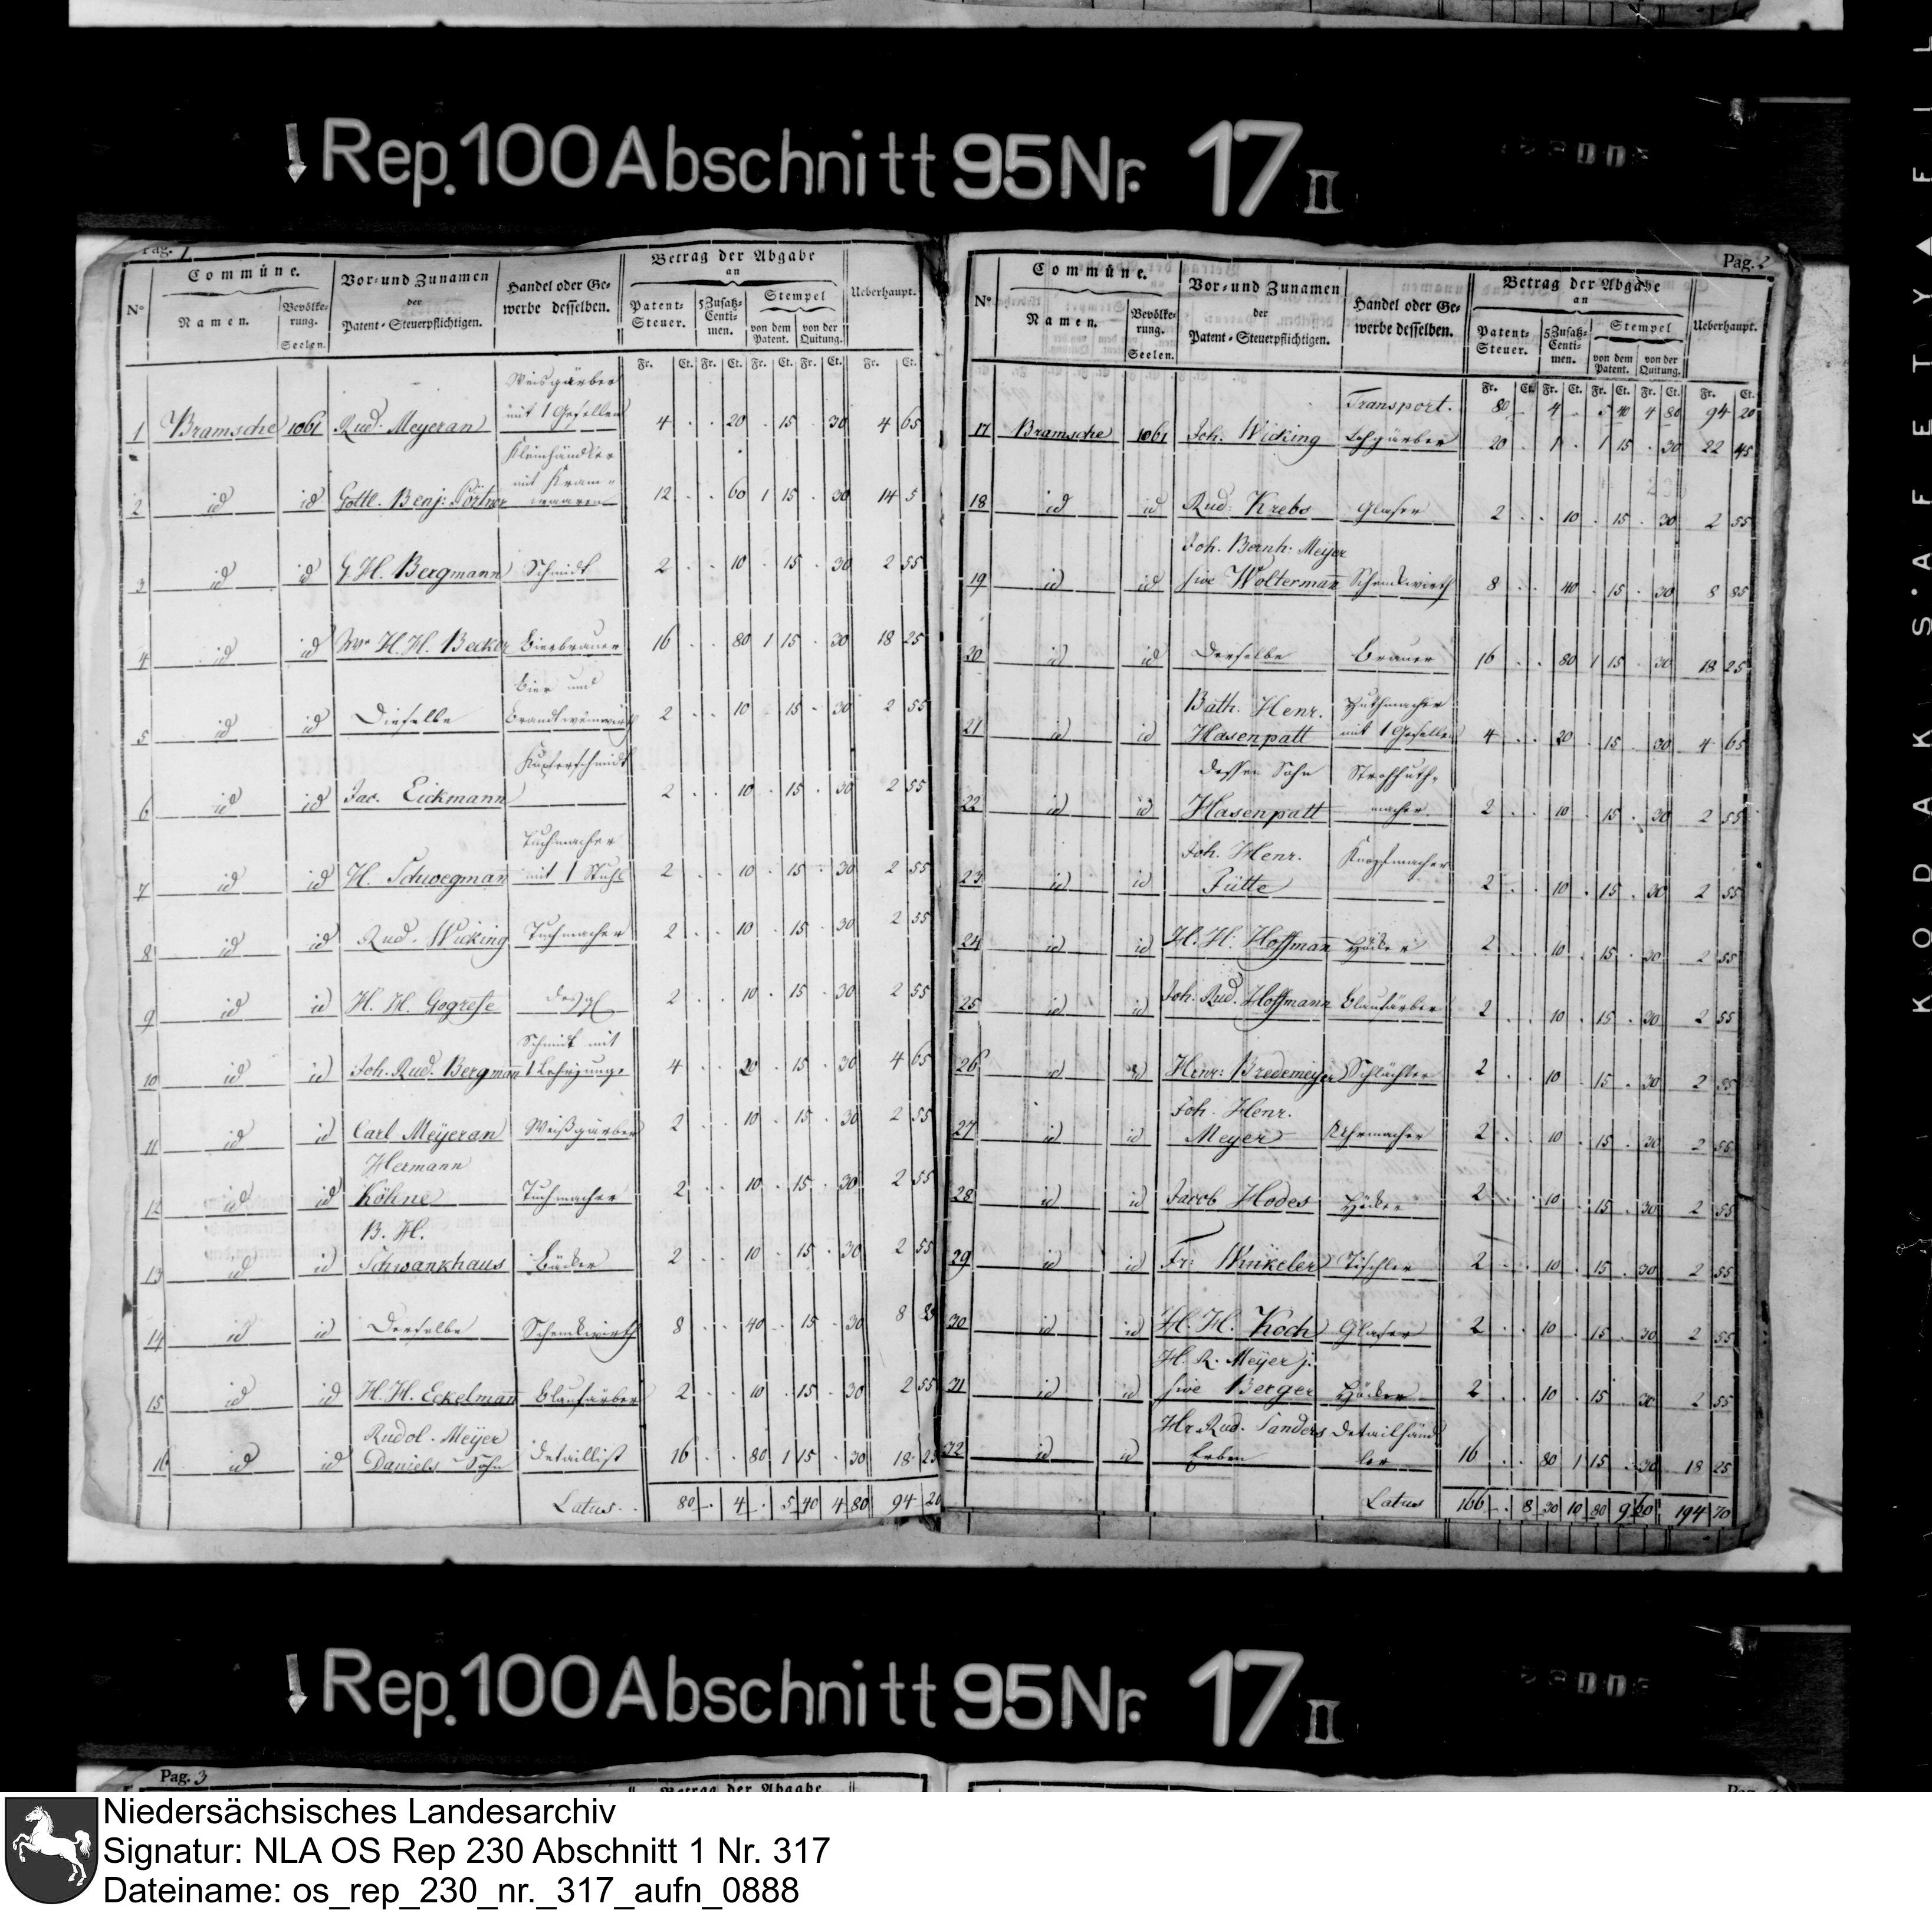 ↓ Rep. 100 Abschnitt 95 Nr. 17 II
Pag. 1
N° Commüne. Namen. Bevölke-rung. Seelen. Vor- und Zunamen der Patent-Steuerpflichtigen. Handel oder Ge-werbe desselben. Betrag der Abgabe an Patent-Steuer. 5 Zusatz-Centi-men. Stempel von dem Patent. von der Quitung. Ueberhaupt.
Fr. Ct. Fr. Ct. Fr. Ct. Fr. Ct. Fr. Ct.
Weisgärber
1 Bramsche 1061 Rud. Meyeran mit 1 Gesellen 4 . . 20 . 15 . 30 4 65
Kleinhändler
mit Kram-
2 id id Gottl. Benj: Pörtner waaren 12 . . 60 1 15 . 30 14 5
3 id id G. H. Bergmann Schmidt 2 . . 10 . 15 . 30 2 55
4 id id Ww H. H. Becker Bierbrauer 16 . . 80 1 15 . 30 18 25
Bier und
5 id id Dieselbe Brandtweinwirth 2 . . 10 . 15 . 30 2 55
Kupferschmidt
6 id id Jac. Eickmann 2 . . 10 . 15 . 30 2 55
Tuchmacher
7 id id H. Schwegman mit 1 Stuhl 2 . . 10 . 15 . 30 2 55
8 id id Rud. Wicking Tuchmacher 2 . . 10 . 15 . 30 2 55
9 id id H. H. Gogrefe desgl 2 . . 10 . 15 . 30 2 55
Schmidt mit
10 id id Joh. Rud. Bergmann 1 Lehrjunge 4 . . 20 . 15 . 30 4 65
11 id id Carl Meÿeran Weißgärber 2 . . 10 . 15 . 30 2 55
Hermann
12 id id Köhne Tuchmacher 2 . . 10 . 15 . 30 2 55
B. H.
13 id id Schwankhaus Bäcker 2 . . 10 . 15 . 30 2 55
14 id id Derselbe Schenkwirth 8 . . 40 . 15 . 30 8 85
15 id id H. H. Eckelman Blaufärber 2 . . 10 . 15 . 30 2 55
Rudol. Meÿer
16 id id Daniels Sohn Detaillist 16 . . 80 1 15 . 30 18 25
Latus. 80 . 4 . 5 40 4 80 94 20
Pag. 2
N° Commüne. Namen. Bevölke-rung. Seelen. Vor- und Zunamen der Patent-Steuerpflichtigen. Handel oder Ge-werbe desselben. Betrag der Abgabe an Patent-Steuer. 5 Zusatz-Centi-men. Stempel von dem Patent. von der Quitung. Ueberhaupt.
Fr. Ct. Fr. Ct. Fr. Ct. Fr. Ct. Fr. Ct.
Transport. 80 - 4 - 5 40 4 80 94 20
17 Bramsche 1061 Joh. Wicking Lohgärber 20 . 1 . 1 15 . 30 22 45
18 id id Rud. Krebs Glaser 2 . . 10 . 15 . 30 2 55
Joh. Bernh: Meÿer
19 id id sive Wolterman Schenkwirth 8 . . 40 . 15 . 30 8 85
20 id id Derselbe Brauer 16 . . 80 1 15 . 30 18 25
Bath. Henr. Huthmacher
21 id id Hasenpatt mit 1 Gesellen 4 . . 20 . 15 . 30 4 65
dessen Sohn Strohhuth-
22 id id Hasenpatt macher 2 . . 10 . 15 . 30 2 55
Joh. Henr. Knopfmacher
23 id id Fütte 2 . . 10 . 15 . 30 2 55
24 id id H. H. Hoffman Höcker 2 . . 10 . 15 . 30 2 55
25 id id Joh. Rud. Hoffmann Blaufärber 2 . . 10 . 15 . 30 2 55
26 id id Henr: Bredemeyer Schlächter 2 . . 10 . 15 . 30 2 55
Joh. Henr.
27 id id Meyer Uhrmacher 2 . . 10 . 15 . 30 2 55
28 id id Jacob Hodes Höcker 2 . . 10 . 15 . 30 2 55
29 id id Fr: Winkeler Tischler 2 . . 10 . 15 . 30 2 55
30 id id H. H. Koch Glaser 2 . . 10 . 15 . 30 2 55
H. R. Meÿer j.
31 id id sive Berger Höcker 2 . . 10 . 15 . 30 2 55
Hr. Rud. Sanders Detailhänd
32 id id Erben ler 16 . . 80 1 15 . 30 18 25
Latus 166 - 8 30 10 80 9 60 194 70
↓ Rep. 100 Abschnitt 95 Nr. 17 II
Pag. 3
Betrag der Abgabe
KODAK SAFETY
Niedersächsisches Landesarchiv
Signatur: NLA OS Rep 230 Abschnitt 1 Nr. 317
Dateiname: os_rep_230_nr._317_aufn_0888